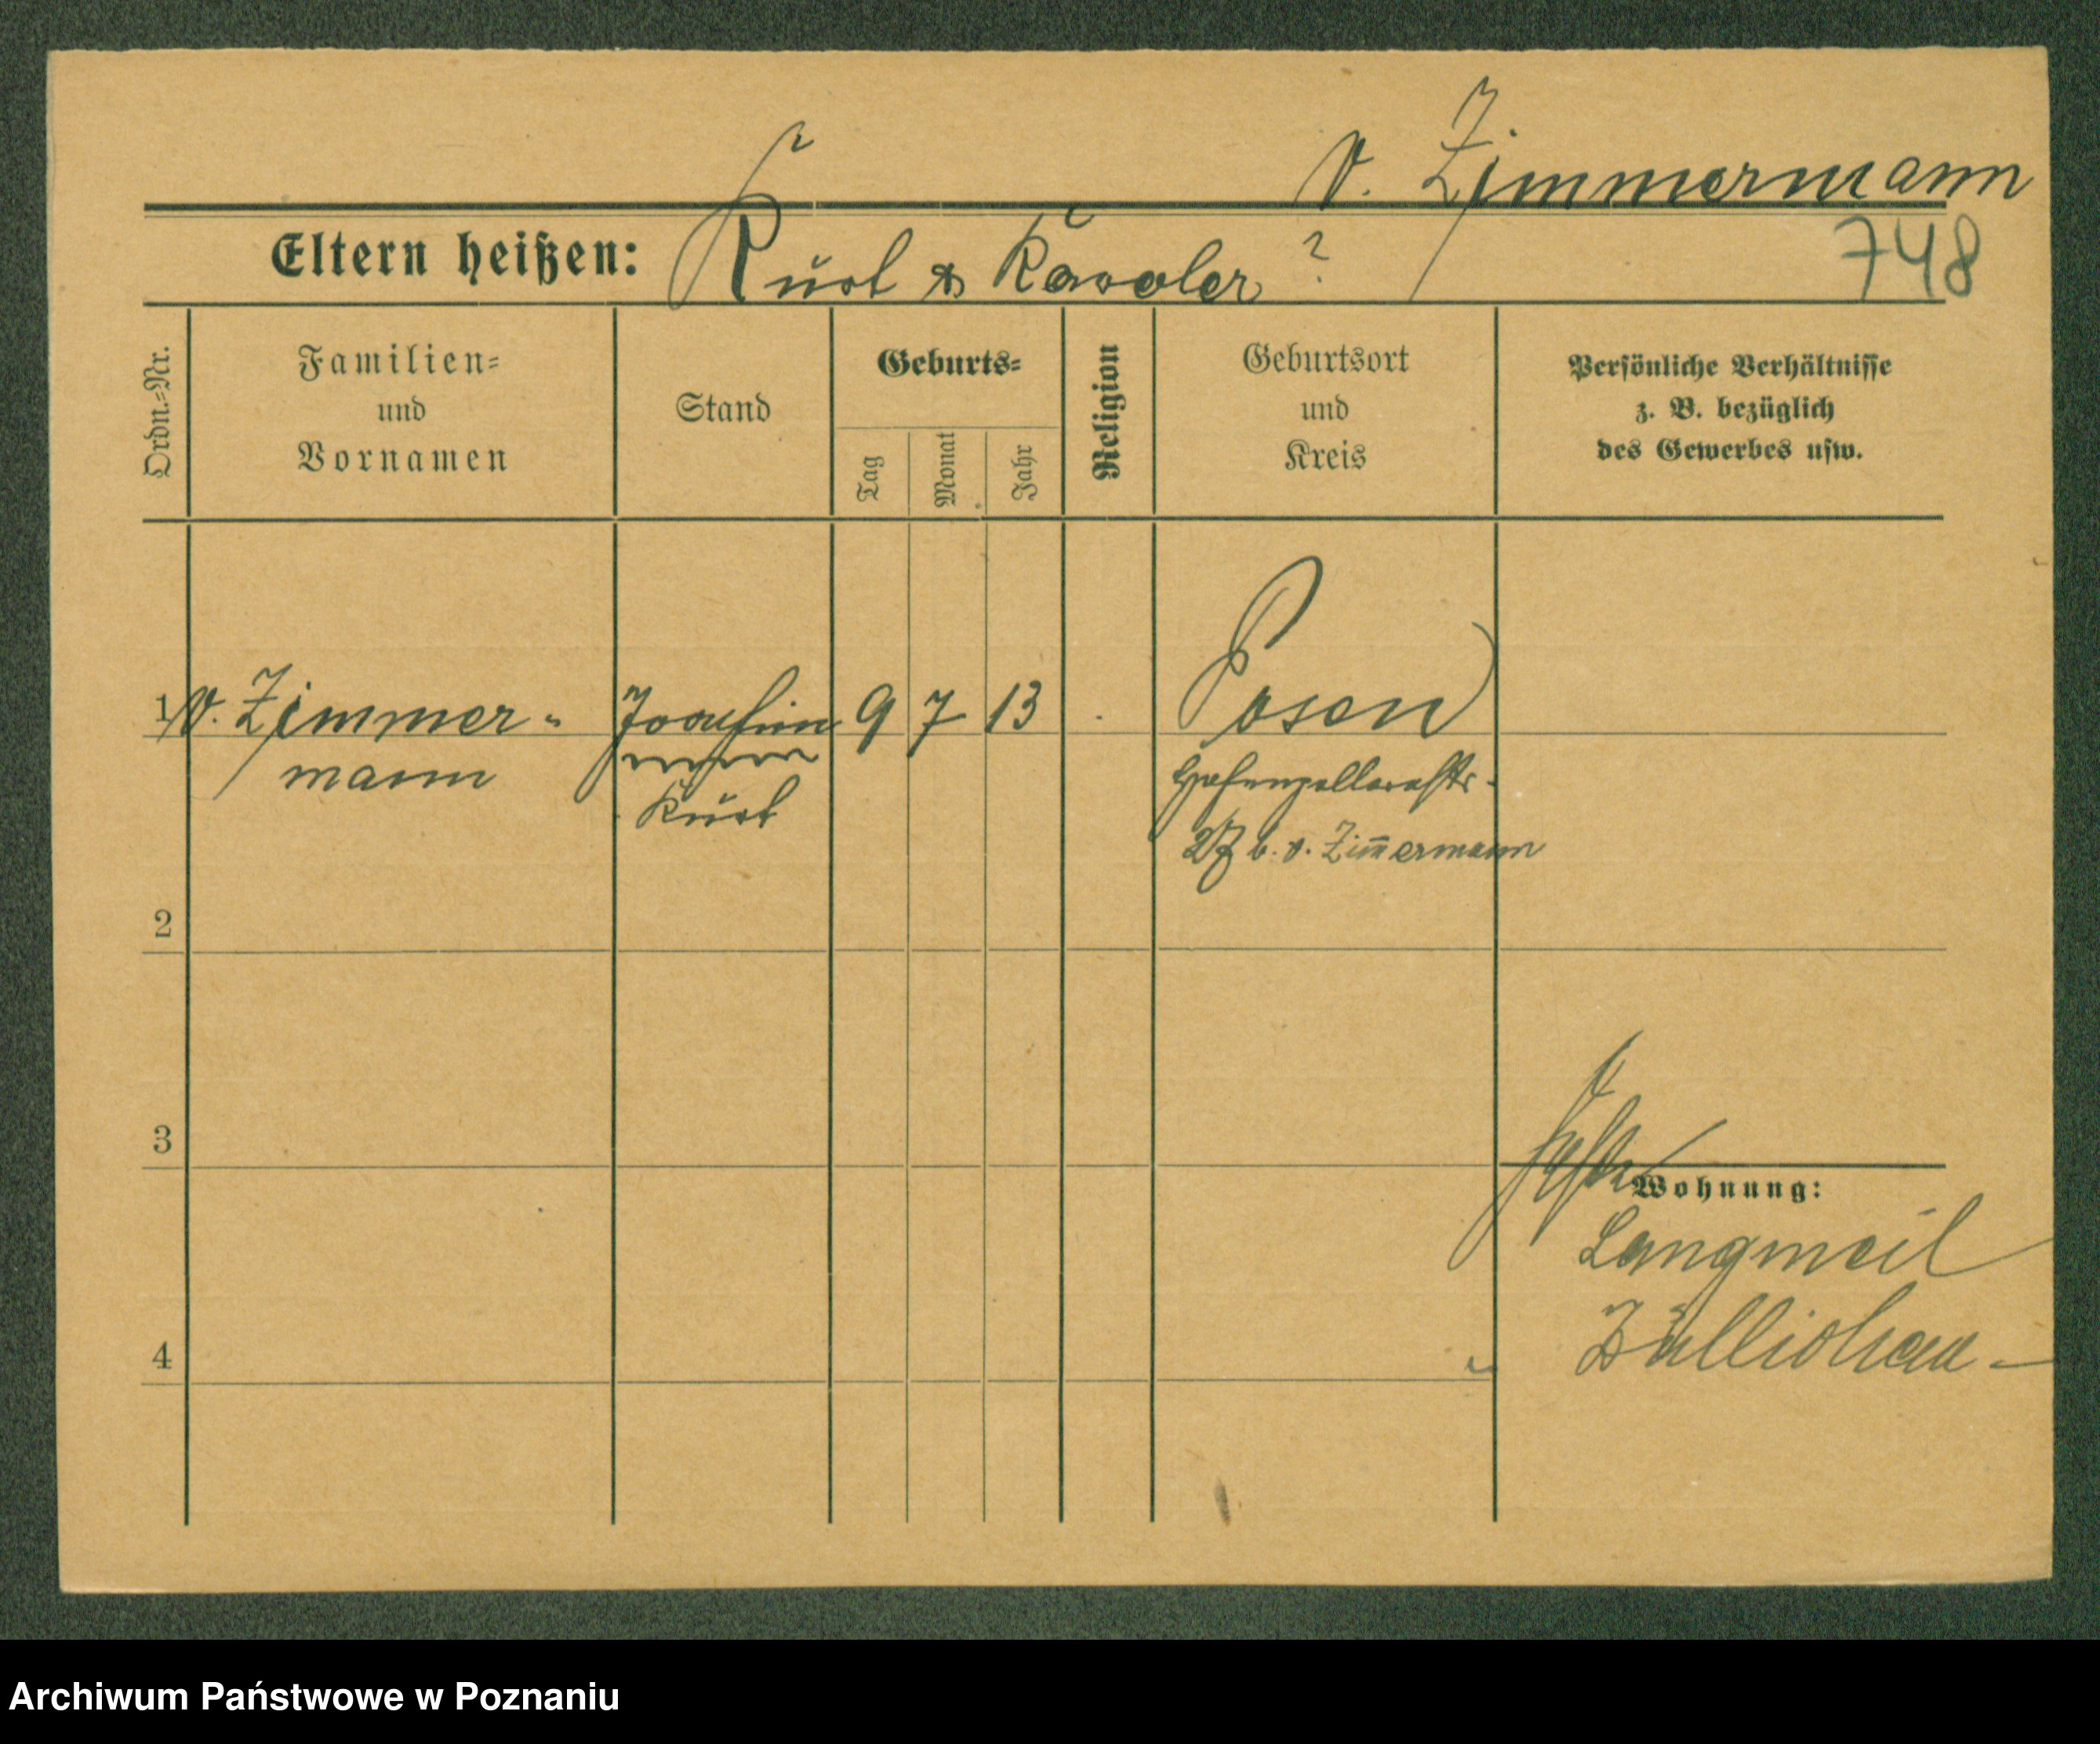 v. Zimmermann
Eltern heißen: Kurt &
748
Ordn.=Nr.
Familien=
und
Vornamen
Stand
Geburts=
Tag
Monat
Jahr
Religion
Geburtsort
und
Kreis
Persönliche Verhältnisse
z. B. bezüglich
des Gewerbes usw.
1 v. Zimmer- Joachim 9 7 13 Posen
mann
Kurt
Hohenzollernstr.
27 b. v. Zim̄ermann
2
3
Wohnung:
Langmeil
Züllichau
4
Archiwum Państwowe w Poznaniu